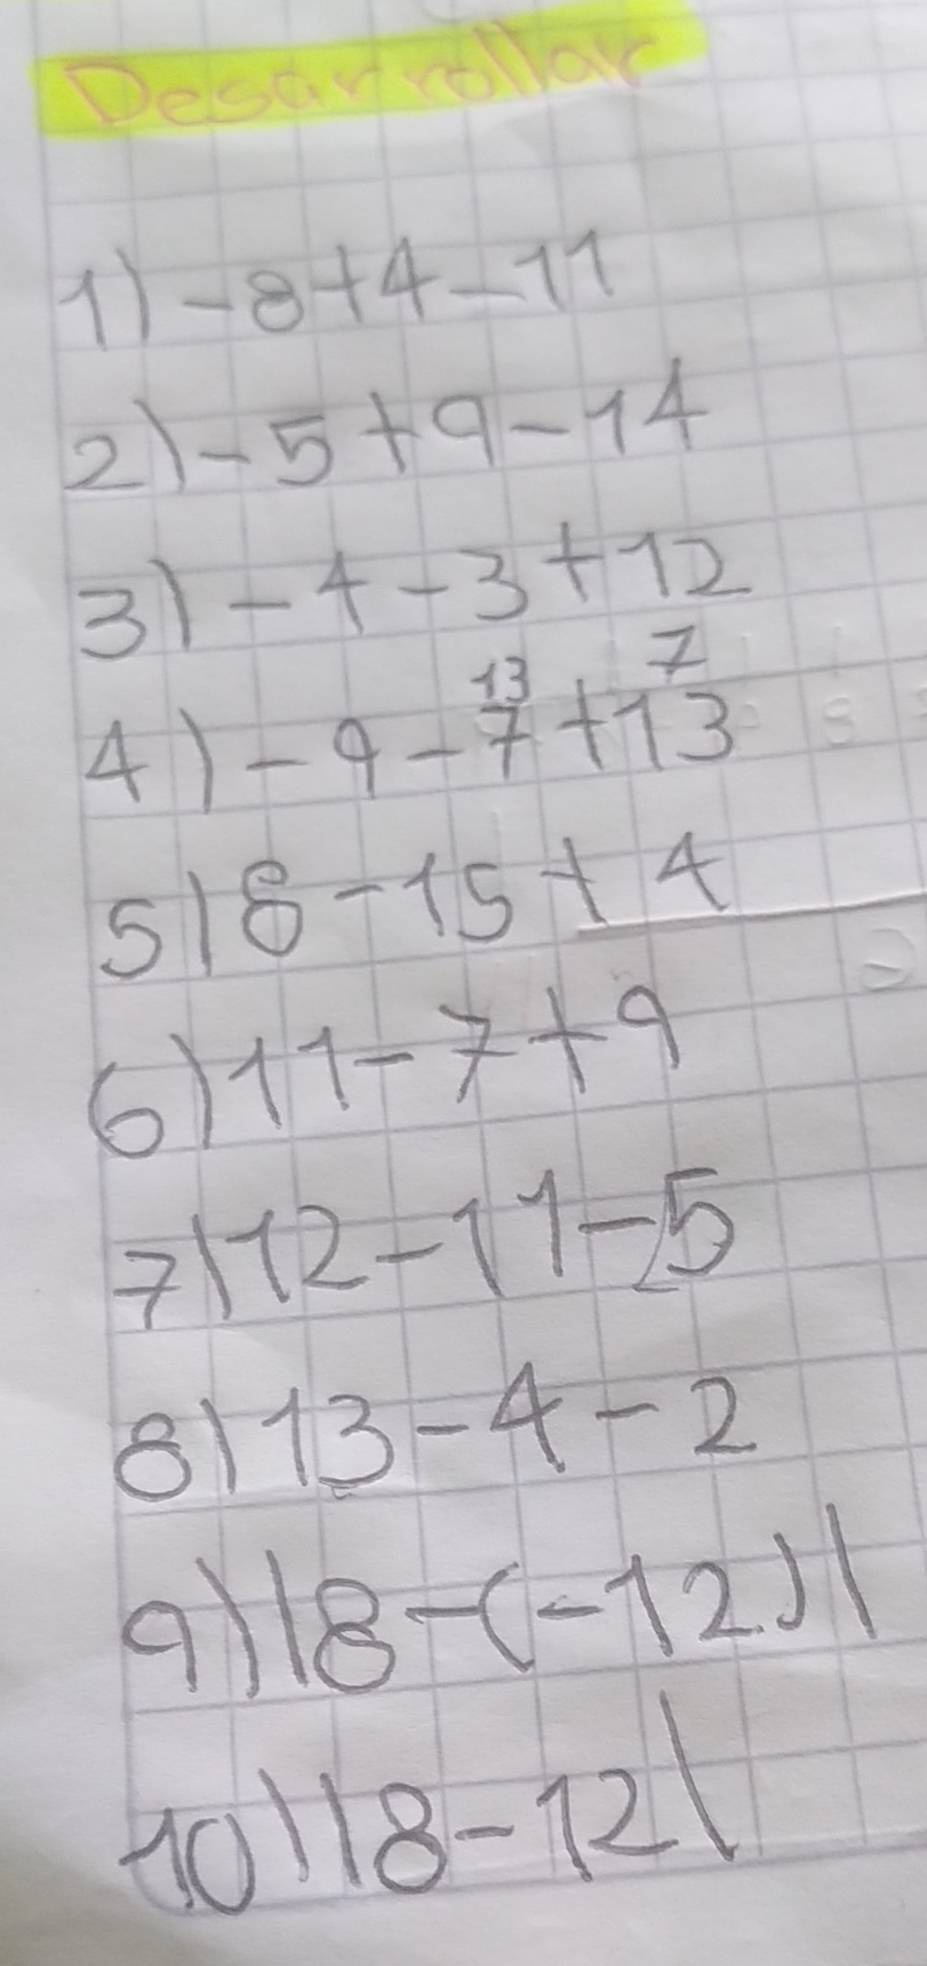 Desarrollar
1) -8+4-11
2) -5+9-14
3) -4-3+12
13 7
4) -9-7+13
5) 8-15+4
6) 11-7+9
7) 12-11-5
8) 13-4-2
9) |8-(-12)|
10) |8-12|